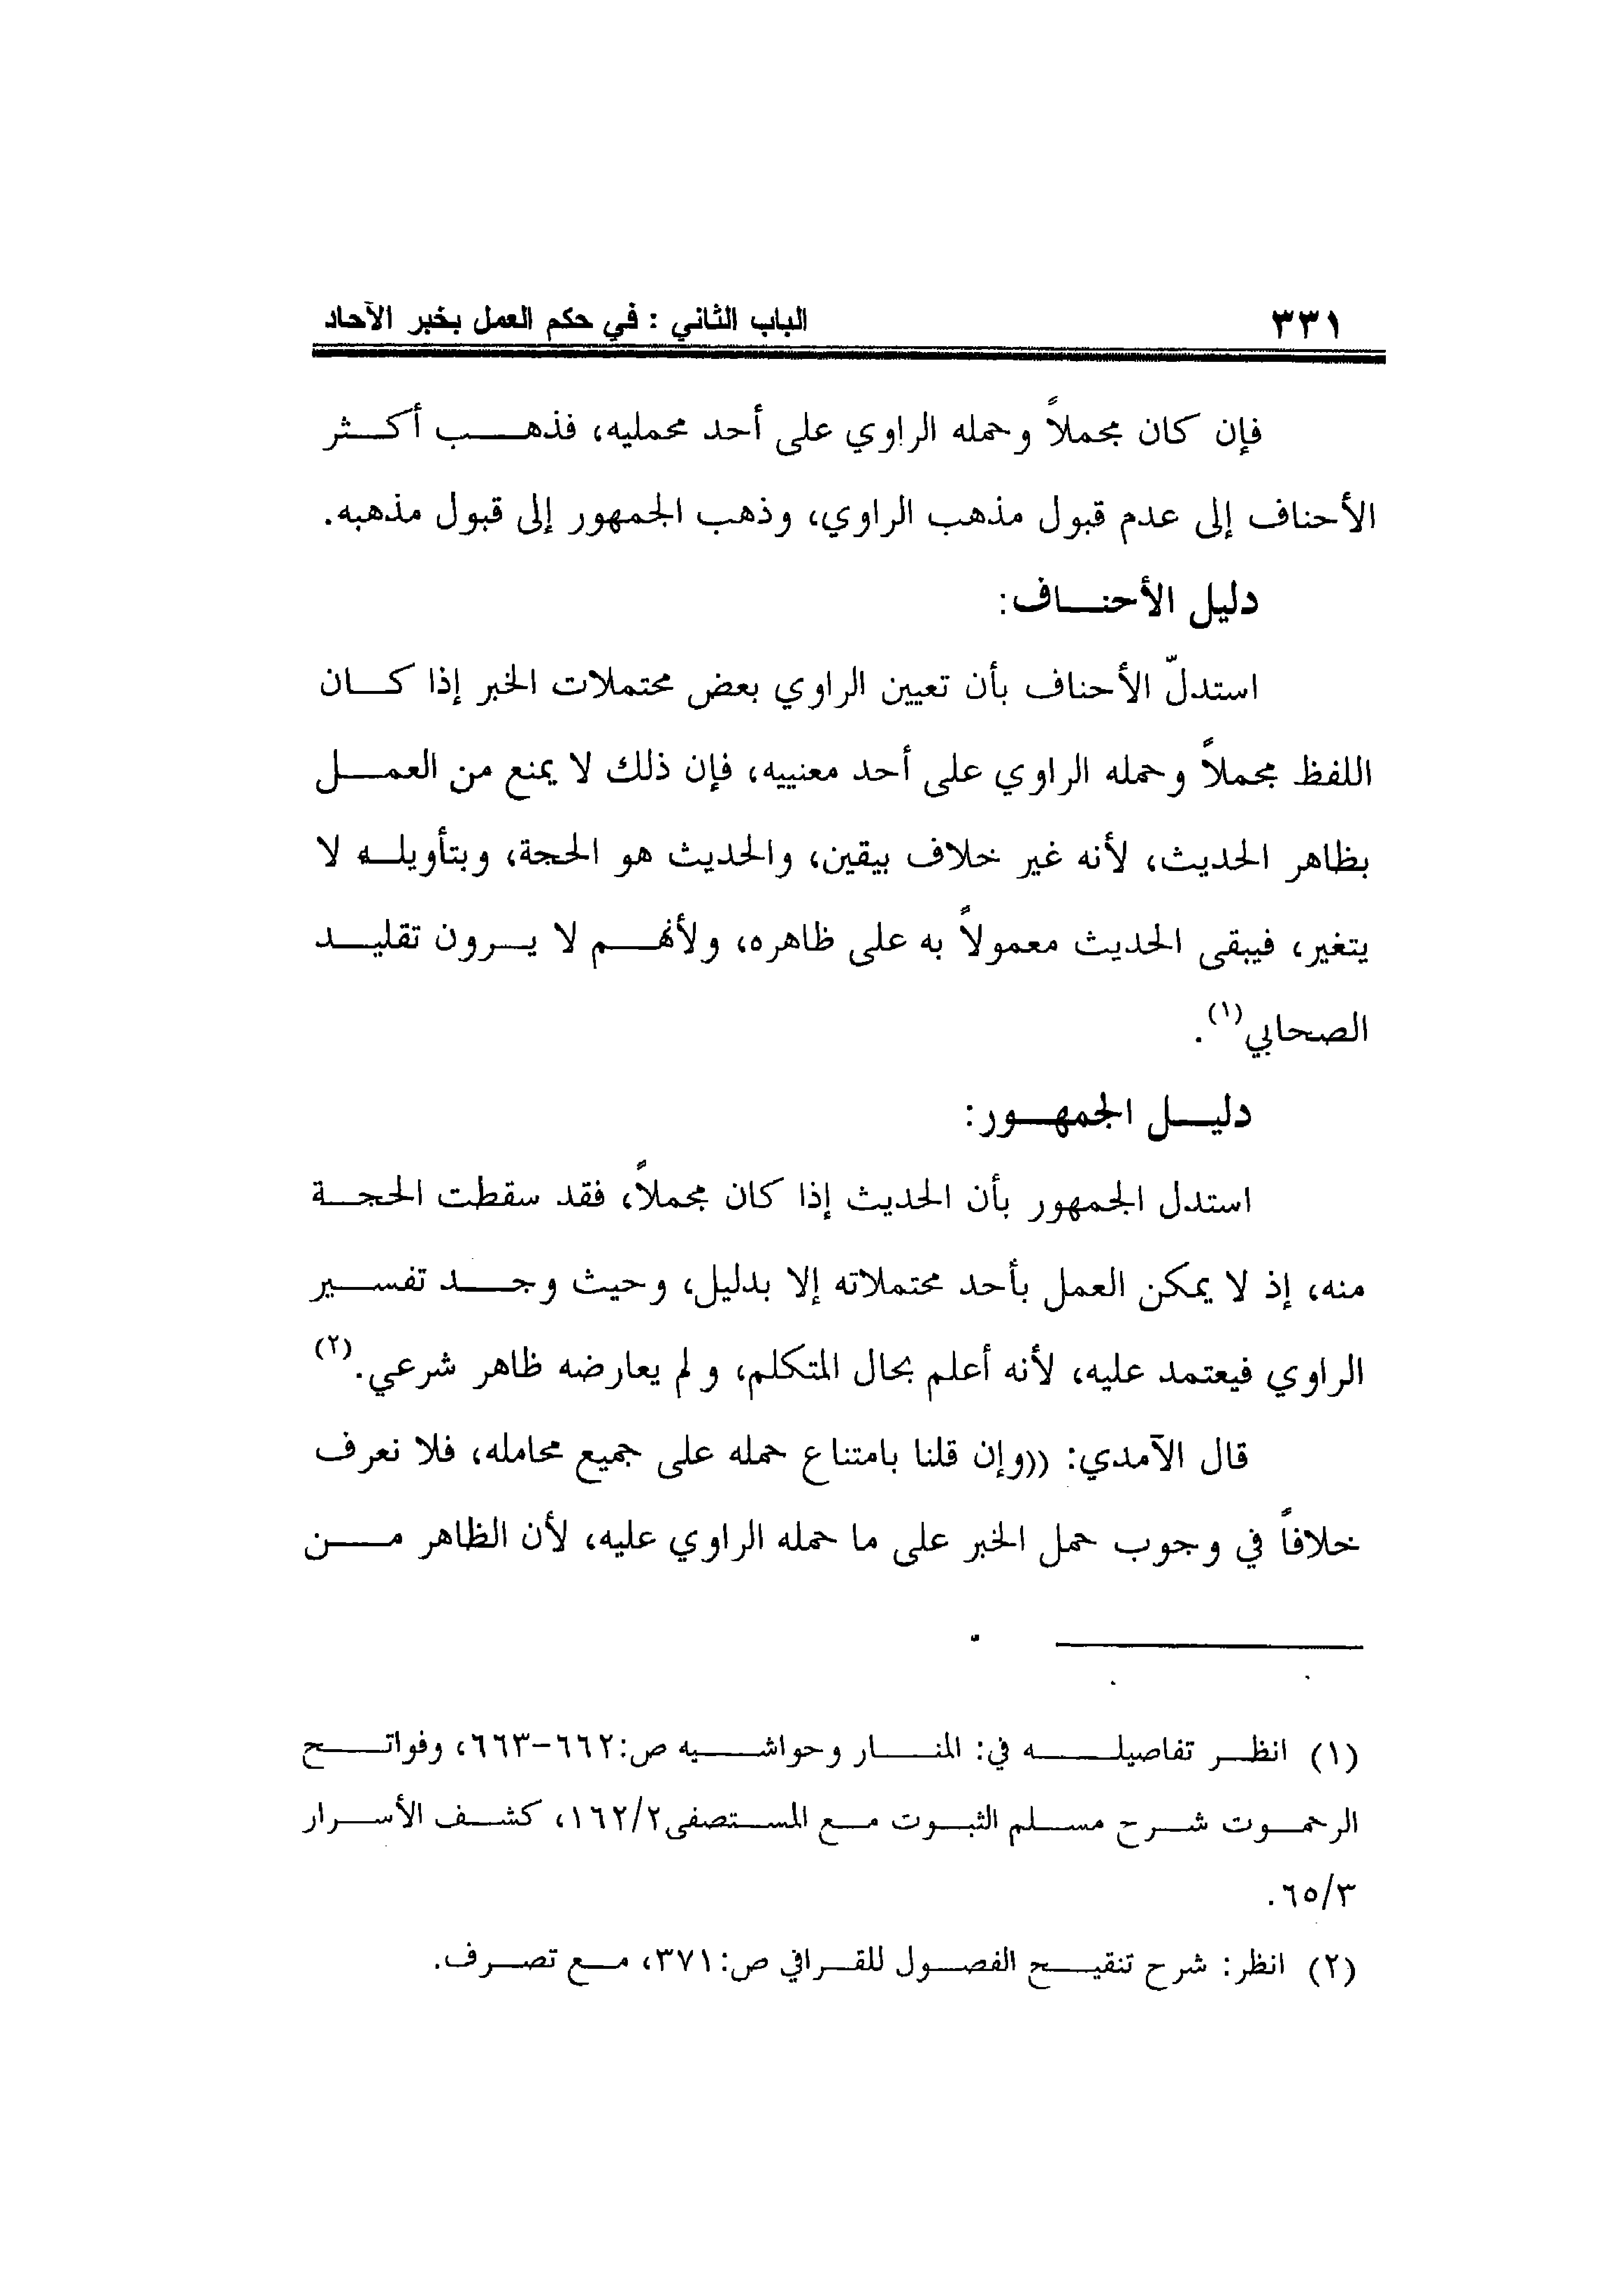 ٣٣١ الباب الثاني : في حكم العمل بخبر الآحاد
فإن كان مجملاً وحمله الراوي على أحد محمليه، فذهب أكثر
الأحناف إلى عدم قبول مذهب الراوي، وذهب الجمهور إلى قبول مذهبه.
دليل الأحناف:
استدلّ الأحناف بأن تعيين الراوي بعض محتملات الخبر إذا كان
اللفظ مجملاً وحمله الراوي على أحد معنييه، فإن ذلك لا يمنع من العمل
بظاهر الحديث، لأنه غير خلاف بيقين، والحديث هو الحجة، وبتأويله لا
يتغير، فيبقى الحديث معمولاً به على ظاهره، ولأنهم لا يرون تقليد
الصحابي(١).
دليل الجمهور:
استدل الجمهور بأن الحديث إذا كان مجملاً، فقد سقطت الحجة
منه، إذ لا يمكن العمل بأحد محتملاته إلا بدليل، وحيث وجد تفسير
الراوي فيعتمد عليه، لأنه أعلم بحال المتكلم، ولم يعارضه ظاهر شرعي.(٢)
قال الآمدي: ((وإن قلنا بامتناع حمله على جميع محامله، فلا نعرف
خلافاً في وجوب حمل الخبر على ما حمله الراوي عليه، لأن الظاهر من
(١) انظر تفاصيله في: المنار وحواشيه ص:٦٦٢-٦٦٣، وفواتح
الرحموت شرح مسلم الثبوت مع المستصفى١٦٢/٢، كشف الأسرار
٦٥/٣.
(٢) انظر: شرح تنقيح الفصول للقرافي ص:٣٧١، مع تصرف.